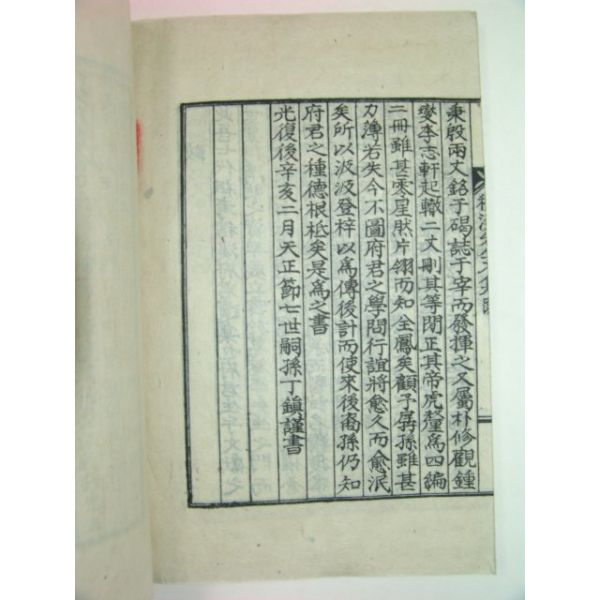 秉殷兩丈銘于碣誌于宰而發揮之又屬朴修觀鍾
燮李志軒起轍二丈刪其等閒正其帝虎釐爲四編
二冊雖甚零星然片翎而知全鳳矣顧予孱孫雖甚
力薄若失今不圖府君之學問行誼將愈久而愈泯
矣所以汲汲登梓以爲傳後計而使來後裔孫仍知
府君之種德根柢矣是爲之書
光復後辛亥二月天正節七世嗣孫丁鎭謹書